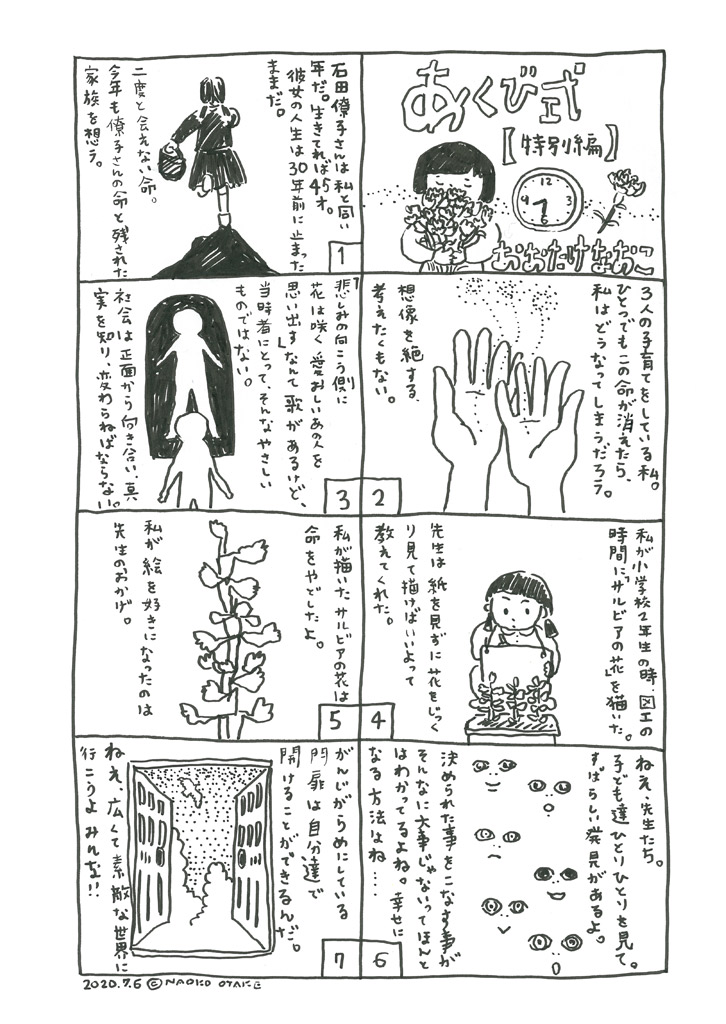 あくび式
【特別編】
12
9 3
6
おおたけなおこ
石田僚子さんは私と同い
年だ。生きてれば45才。
彼女の人生は30年前に止まった
ままだ。
二度と会えない命。
今年も僚子さんの命と残された
家族を想う。
1
3人の子育てをしている私。
ひとつでもこの命が消えたら、
私はどうなってしまうだろう。
想像を絶する、
考えたくもない。
2
「悲しみの向こう側に
花は咲く 愛おしいあの人を
思い出す」なんて歌があるけど、
当時者にとって、そんなやさしい
ものではない。
社会は正面から向き合い、真
実を知り、変わらねばならない。
3
私が小学校2年生の時、図工の
時間に「サルビアの花」を描いた。
先生は紙を見ずに花をじっく
り見て描けばいいよって
教えてくれた。
4
私が描いたサルビアの花は
命をやどしたよ。
私が絵を好きになったのは
先生のおかげ。
5
ねえ、先生たち。
子ども達ひとりひとりを見て。
すばらしい発見があるよ。
決められた事をこなす事が
そんなに大事じゃないってほんと
はわかってるよね。幸せに
なる方法はね……
6
がんじがらめにしている
門扉は自分達で
開けることができるんだ。
ねえ、広くて素敵な世界に
行こうよ みんな!!
7
2020.7.6 ©NAOKO OTAKE